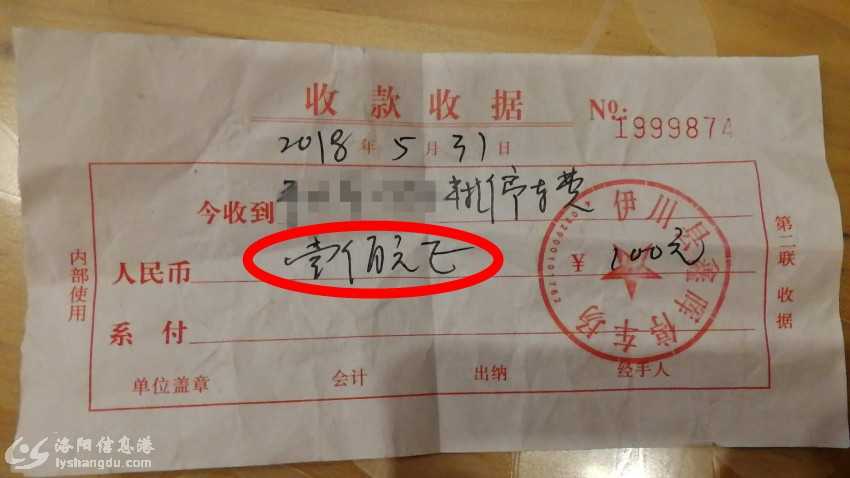 收款收据 No: 1999874
2018年5月31日
今收到 停车费
人民币 壹佰元正 ¥ 100元
系付
单位盖章 会计 出纳 经手人
内部使用
第二联 收据
伊川县鑫晖停车场
洛阳信息港
lyshangdu.com